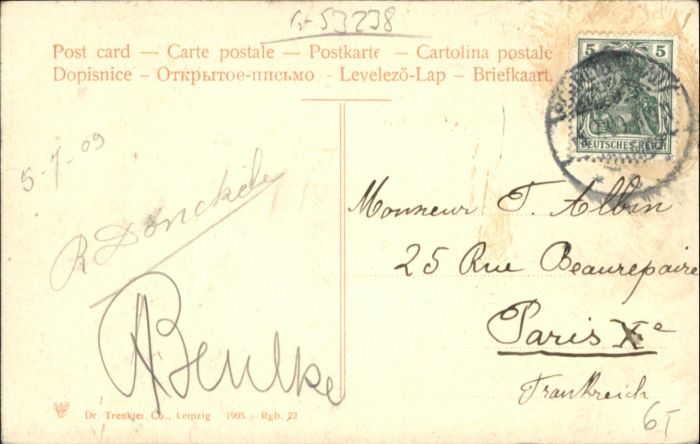 G-53238
Post card – Carte postale – Postkarte – Cartolina postale
Dopisnice – Открытое-письмо – Levelező-Lap – Briefkaart.
5
5
DEUTSCHES REICH
5-7-09
R Donckele
Monsieur T. Albin
25 Rue Beaurepaire
Paris Xe
Frankreich
Dr. Trenkler Co., Leipzig 1905 Rgb. 22